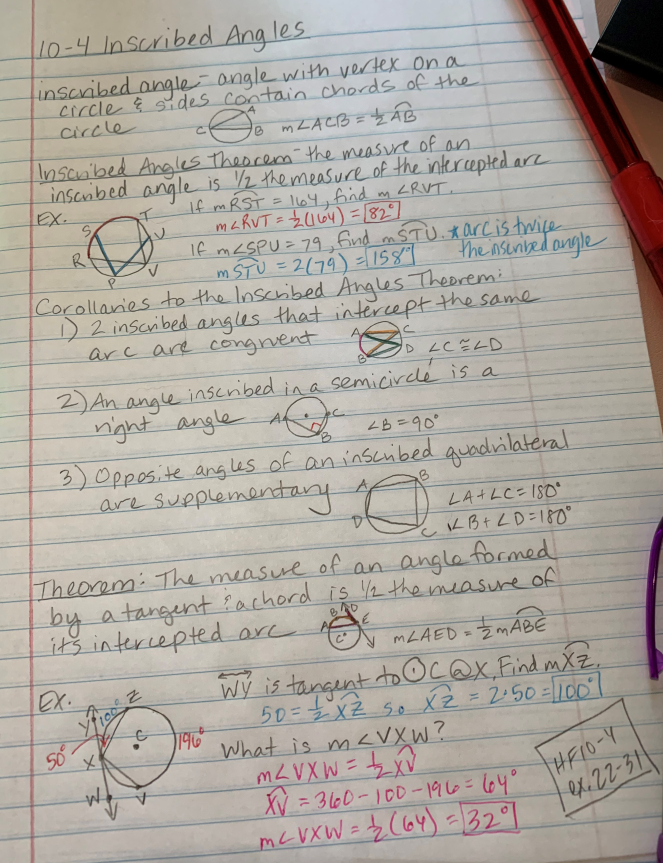 10-4 Inscribed Angles
inscribed angle - angle with vertex on a
circle & sides contain chords of the
circle
A
C
B
m∠ACB = ½ A͡B
Inscribed Angles Theorem - the measure of an
inscribed angle is 1/2 the measure of the intercepted arc
EX.
If mR͡ST = 164, find m∠RVT.
m∠RVT = ½(164) = 82°
S
T
U
R
P
V
If m∠SPU = 79, find mS͡TU. *arc is twice
the inscribed angle
mS͡TU = 2(79) = 158°
Corollaries to the Inscribed Angles Theorem:
1) 2 inscribed angles that intercept the same
arc are congruent
A
C
B
D
∠C ≅ ∠D
2) An angle inscribed in a semicircle is a
right angle
A
C
B
∠B = 90°
3) Opposite angles of an inscribed quadrilateral
are supplementary
A
B
D
C
∠A + ∠C = 180°
∠B + ∠D = 180°
Theorem: The measure of an angle formed
by a tangent & a chord is 1/2 the measure of
it's intercepted arc
A
B
D
E
C
m∠AED = ½ mA͡BE
EX.
W͟Y is tangent to ⊙C @ X. Find mX͡Z.
50 = ½ X͡Z so X͡Z = 2·50 = 100°
Z
Y
100°
C
196°
50°
X
W
V
What is m∠VXW?
m∠VXW = ½ X͡V
X͡V = 360 - 100 - 196 = 64°
m∠VXW = ½(64) = 32°
HF10-4
ex. 22-31